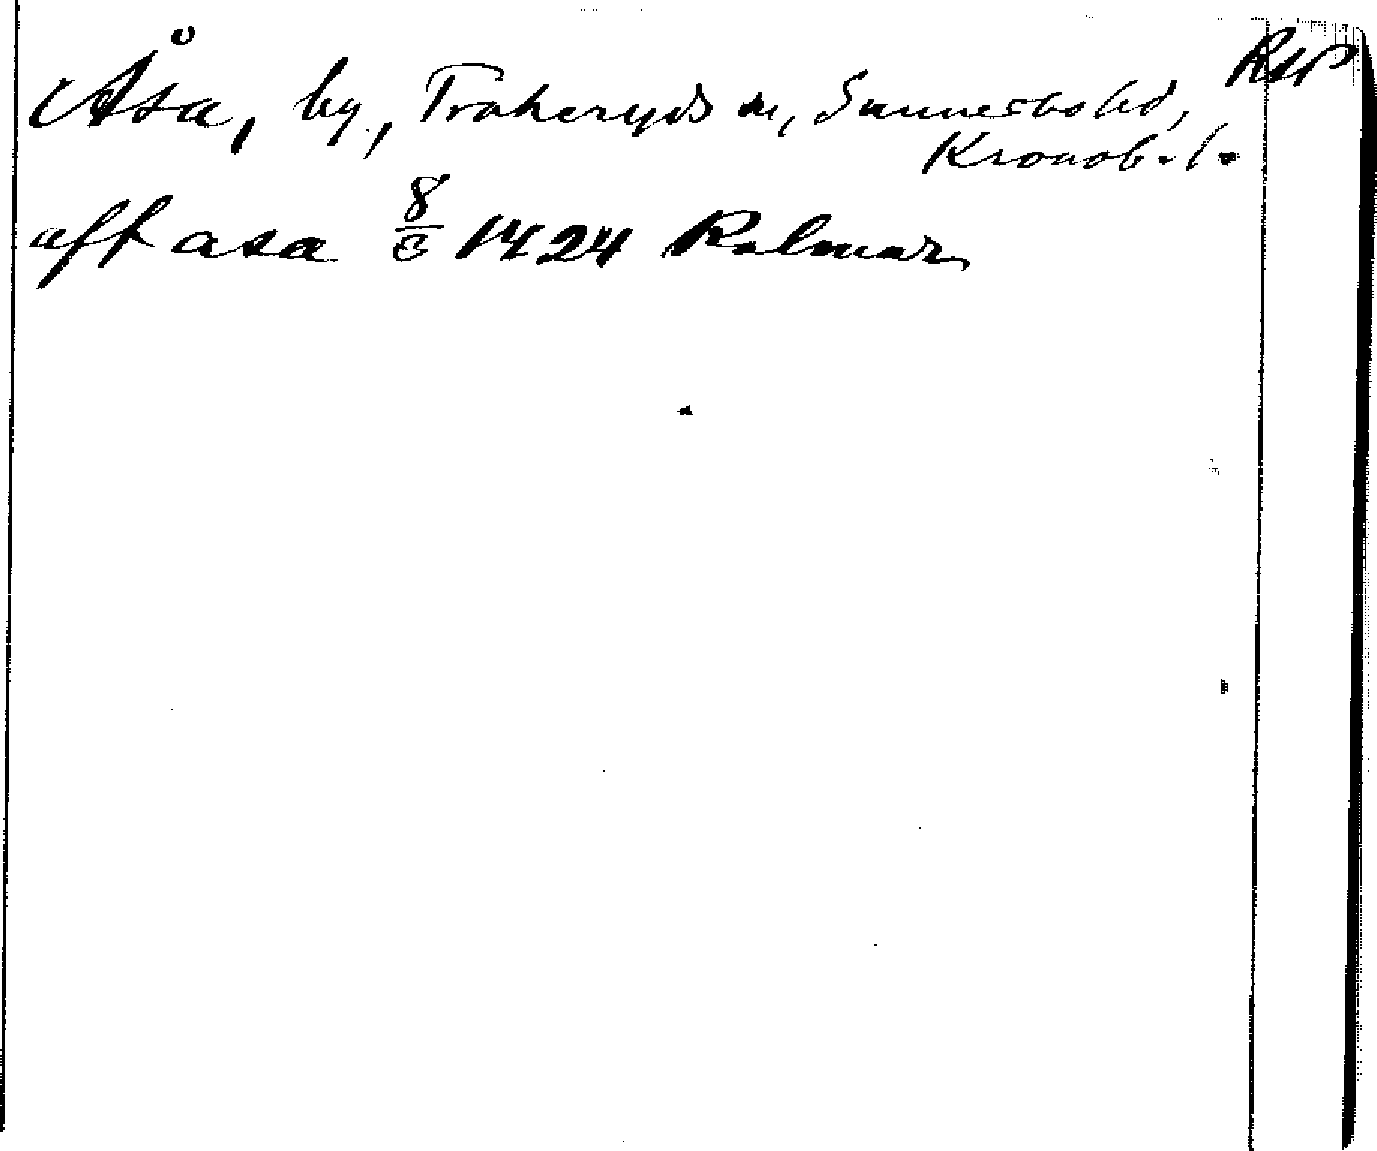 RAP
Åsa, by, Traheryds sn, Sunnerbo hd,
Kronob. l.
aff asa 8/5 1424 Kalmar